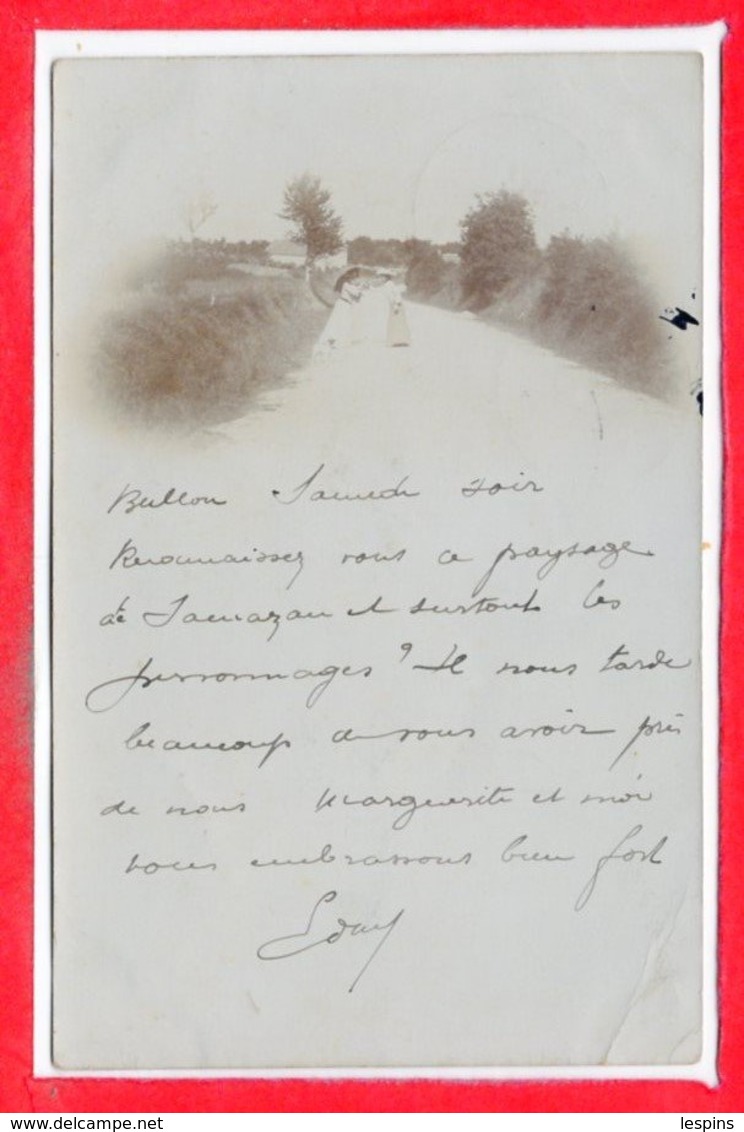 Bullon Samedi soir
Reconnaissez vous ce paysage
de Samazan et surtout les
personnages ? Il nous tarde
beaucoup de vous avoir près
de nous Marguerite et moi
vous embrassons bien fort
lespins
Delcampe.net